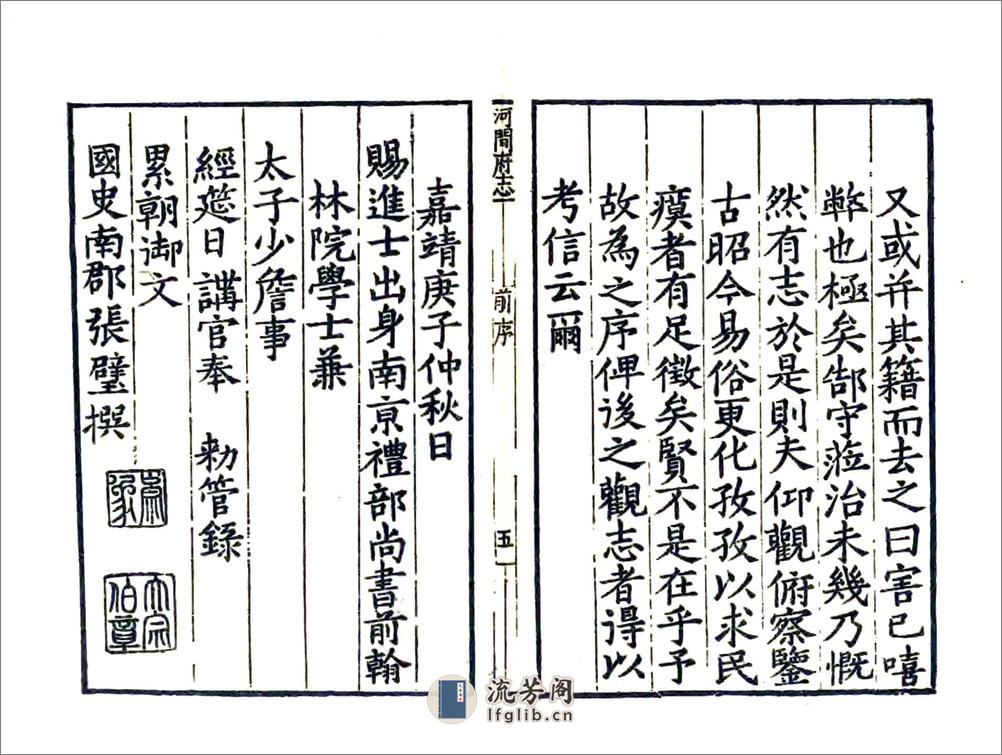 又或并其籍而去之曰害已嘻
弊也極矣郜守蒞治未幾乃慨
然有志於是則夫仰觀俯察鑒
古昭今易俗更化孜孜以求民
瘼者有足徵矣賢不是在乎予
故為之序俾後之觀志者得以
考信云爾
河間府志
前序
五
嘉靖庚子仲秋日
賜進士出身南京禮部尚書前翰
林院學士兼
太子少詹事
經筵日講官奉 勑管錄
累朝御文
國史南郡張璧撰
大宗
伯章
流芳阁
lfglib.cn